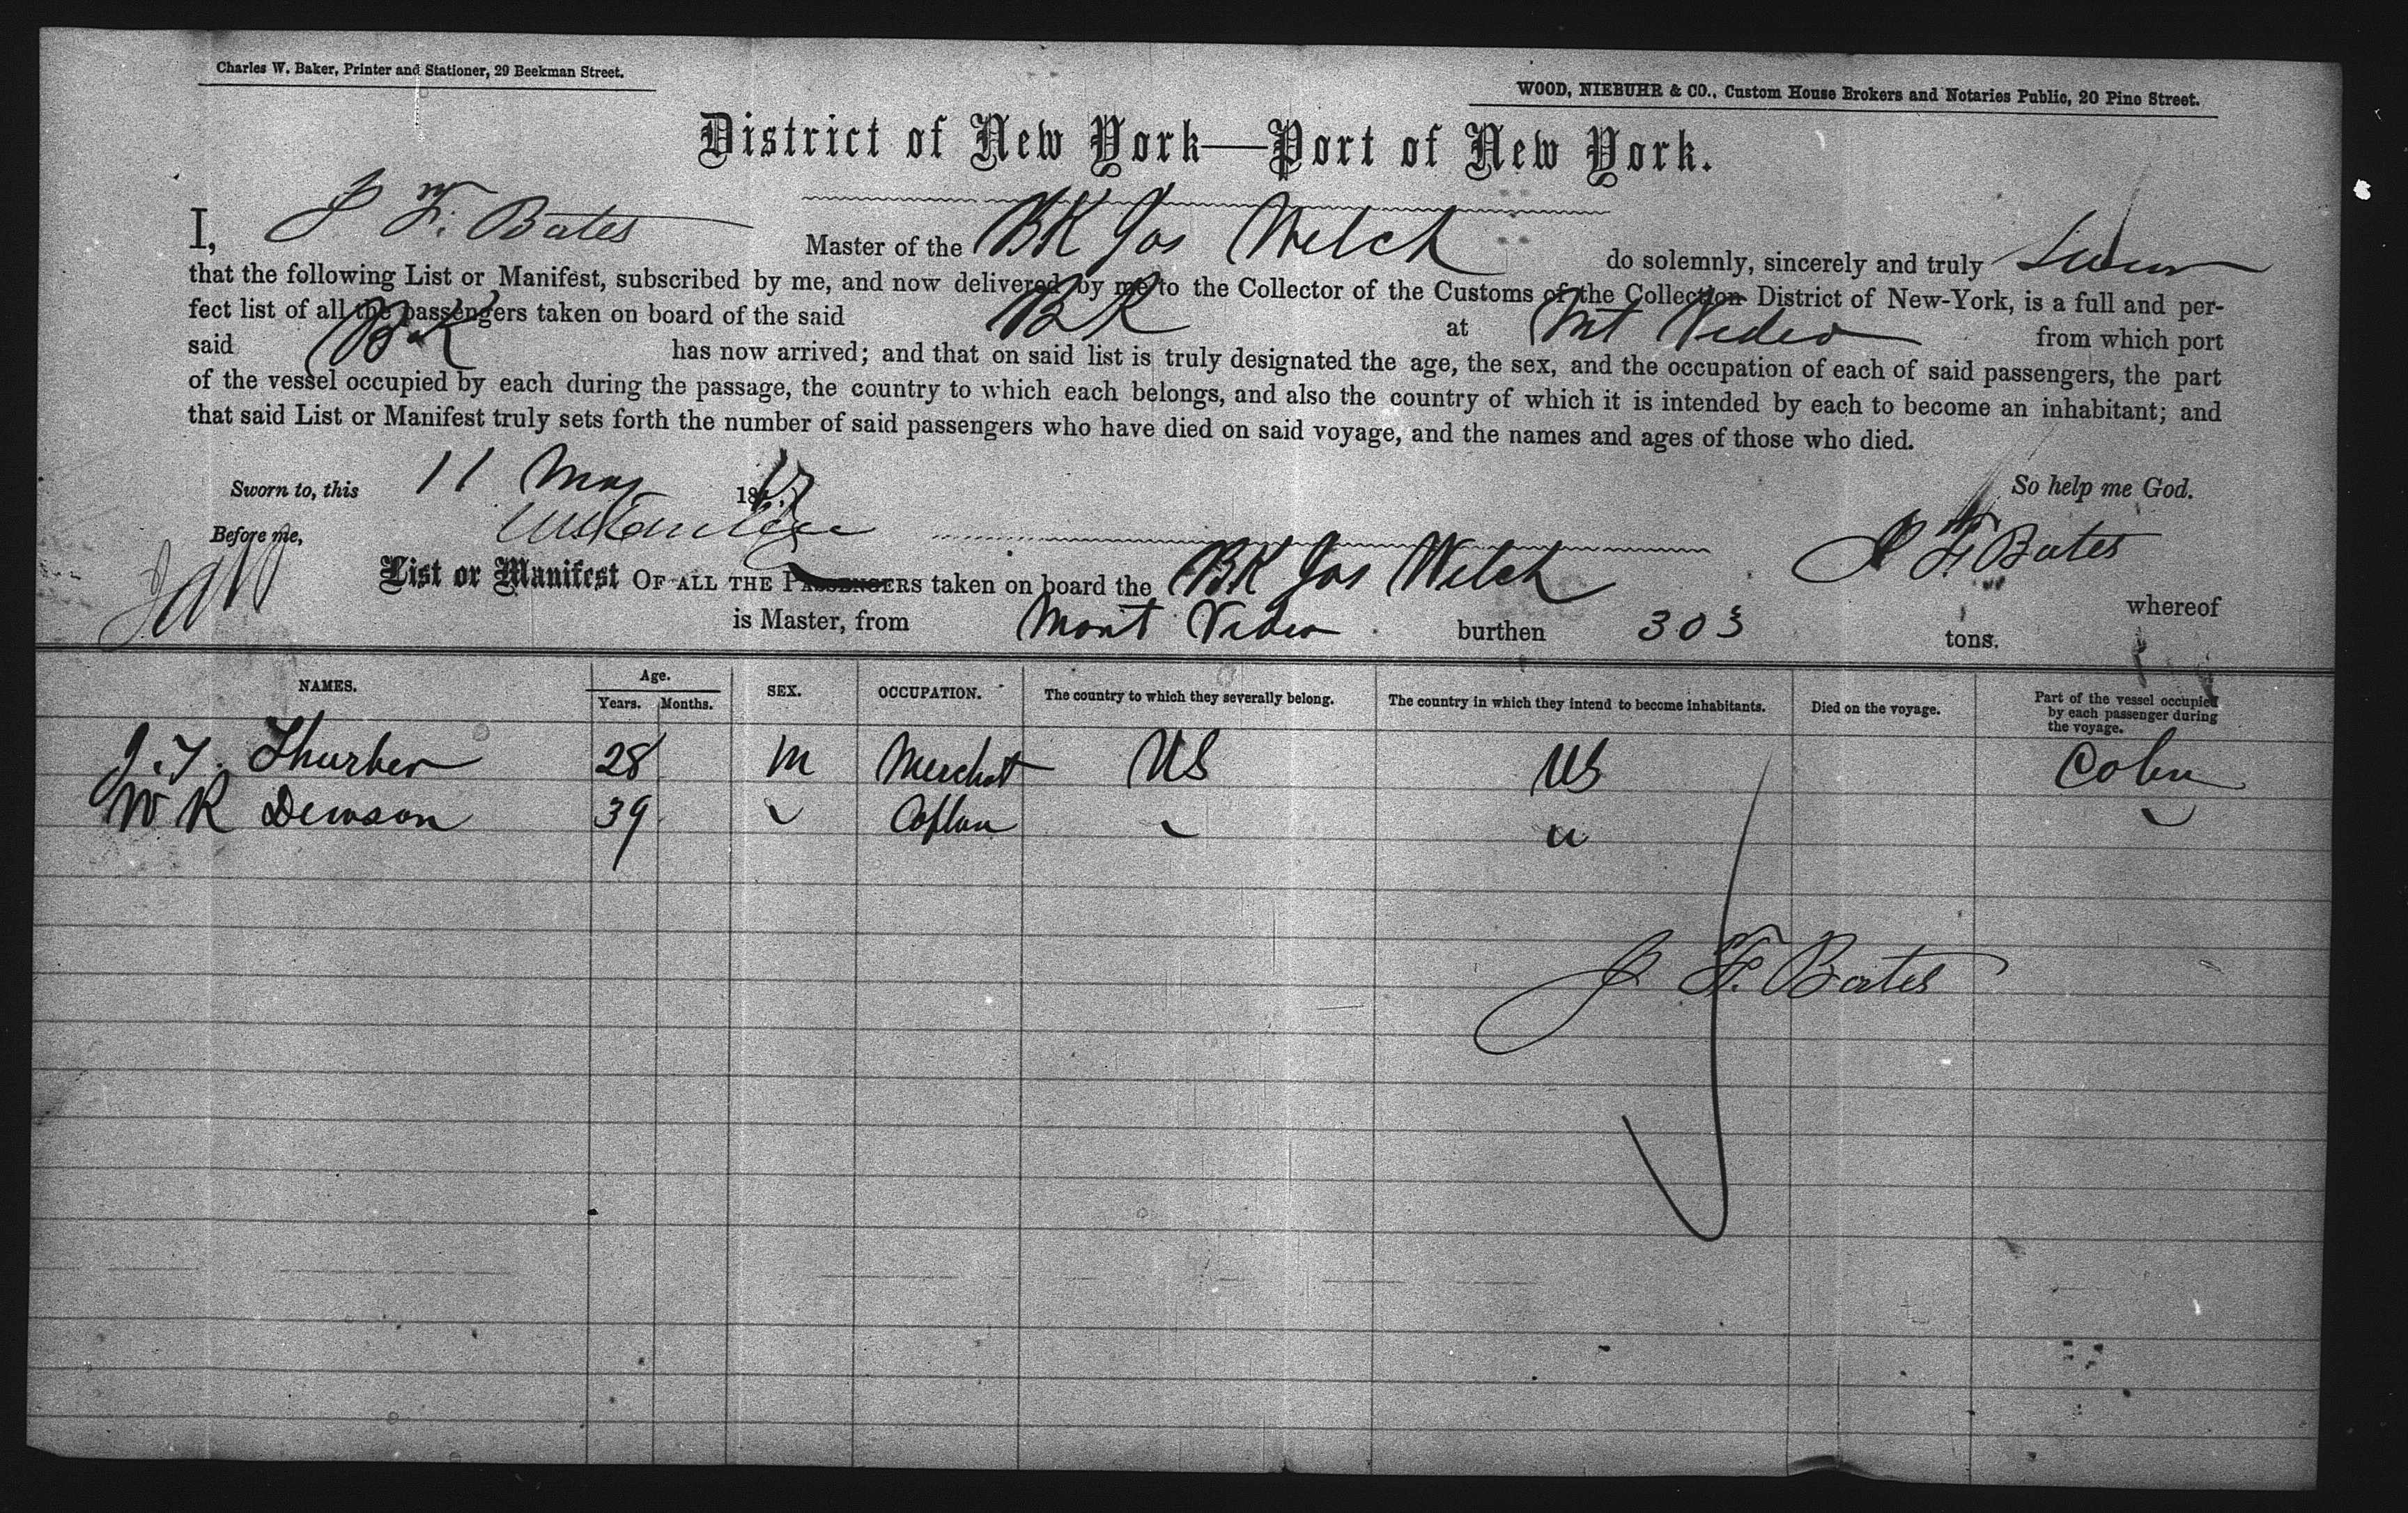 Charles W. Baker, Printer and Stationer, 29 Beekman Street.
WOOD, NIEBUHR & CO., Custom House Brokers and Notaries Public, 20 Pine Street.
District of New York—Port of New York.
I, J. F. Bates Master of the BK Jas Welch do solemnly, sincerely and truly Swear
that the following List or Manifest, subscribed by me, and now delivered by me to the Collector of the Customs of the Collection District of New-York, is a full and per-
fect list of all the passengers taken on board of the said BK at Mt Video from which port
said BK has now arrived; and that on said list is truly designated the age, the sex, and the occupation of each of said passengers, the part
of the vessel occupied by each during the passage, the country to which each belongs, and also the country of which it is intended by each to become an inhabitant; and
that said List or Manifest truly sets forth the number of said passengers who have died on said voyage, and the names and ages of those who died.
Sworn to, this 11 May 1867 So help me God.
Before me, J F Bates
List or Manifest OF ALL THE PASSENGERS taken on board the BK Jas Welch whereof
is Master, from Mont Video burthen 303 tons.
NAMES. Age. Years. Months. SEX. OCCUPATION. The country to which they severally belong. The country in which they intend to become inhabitants. Died on the voyage. Part of the vessel occupied by each passenger during the voyage.
J. T. Thurber 28 M Merchat US US
W R Dewson 39 " " "
J F. Bates